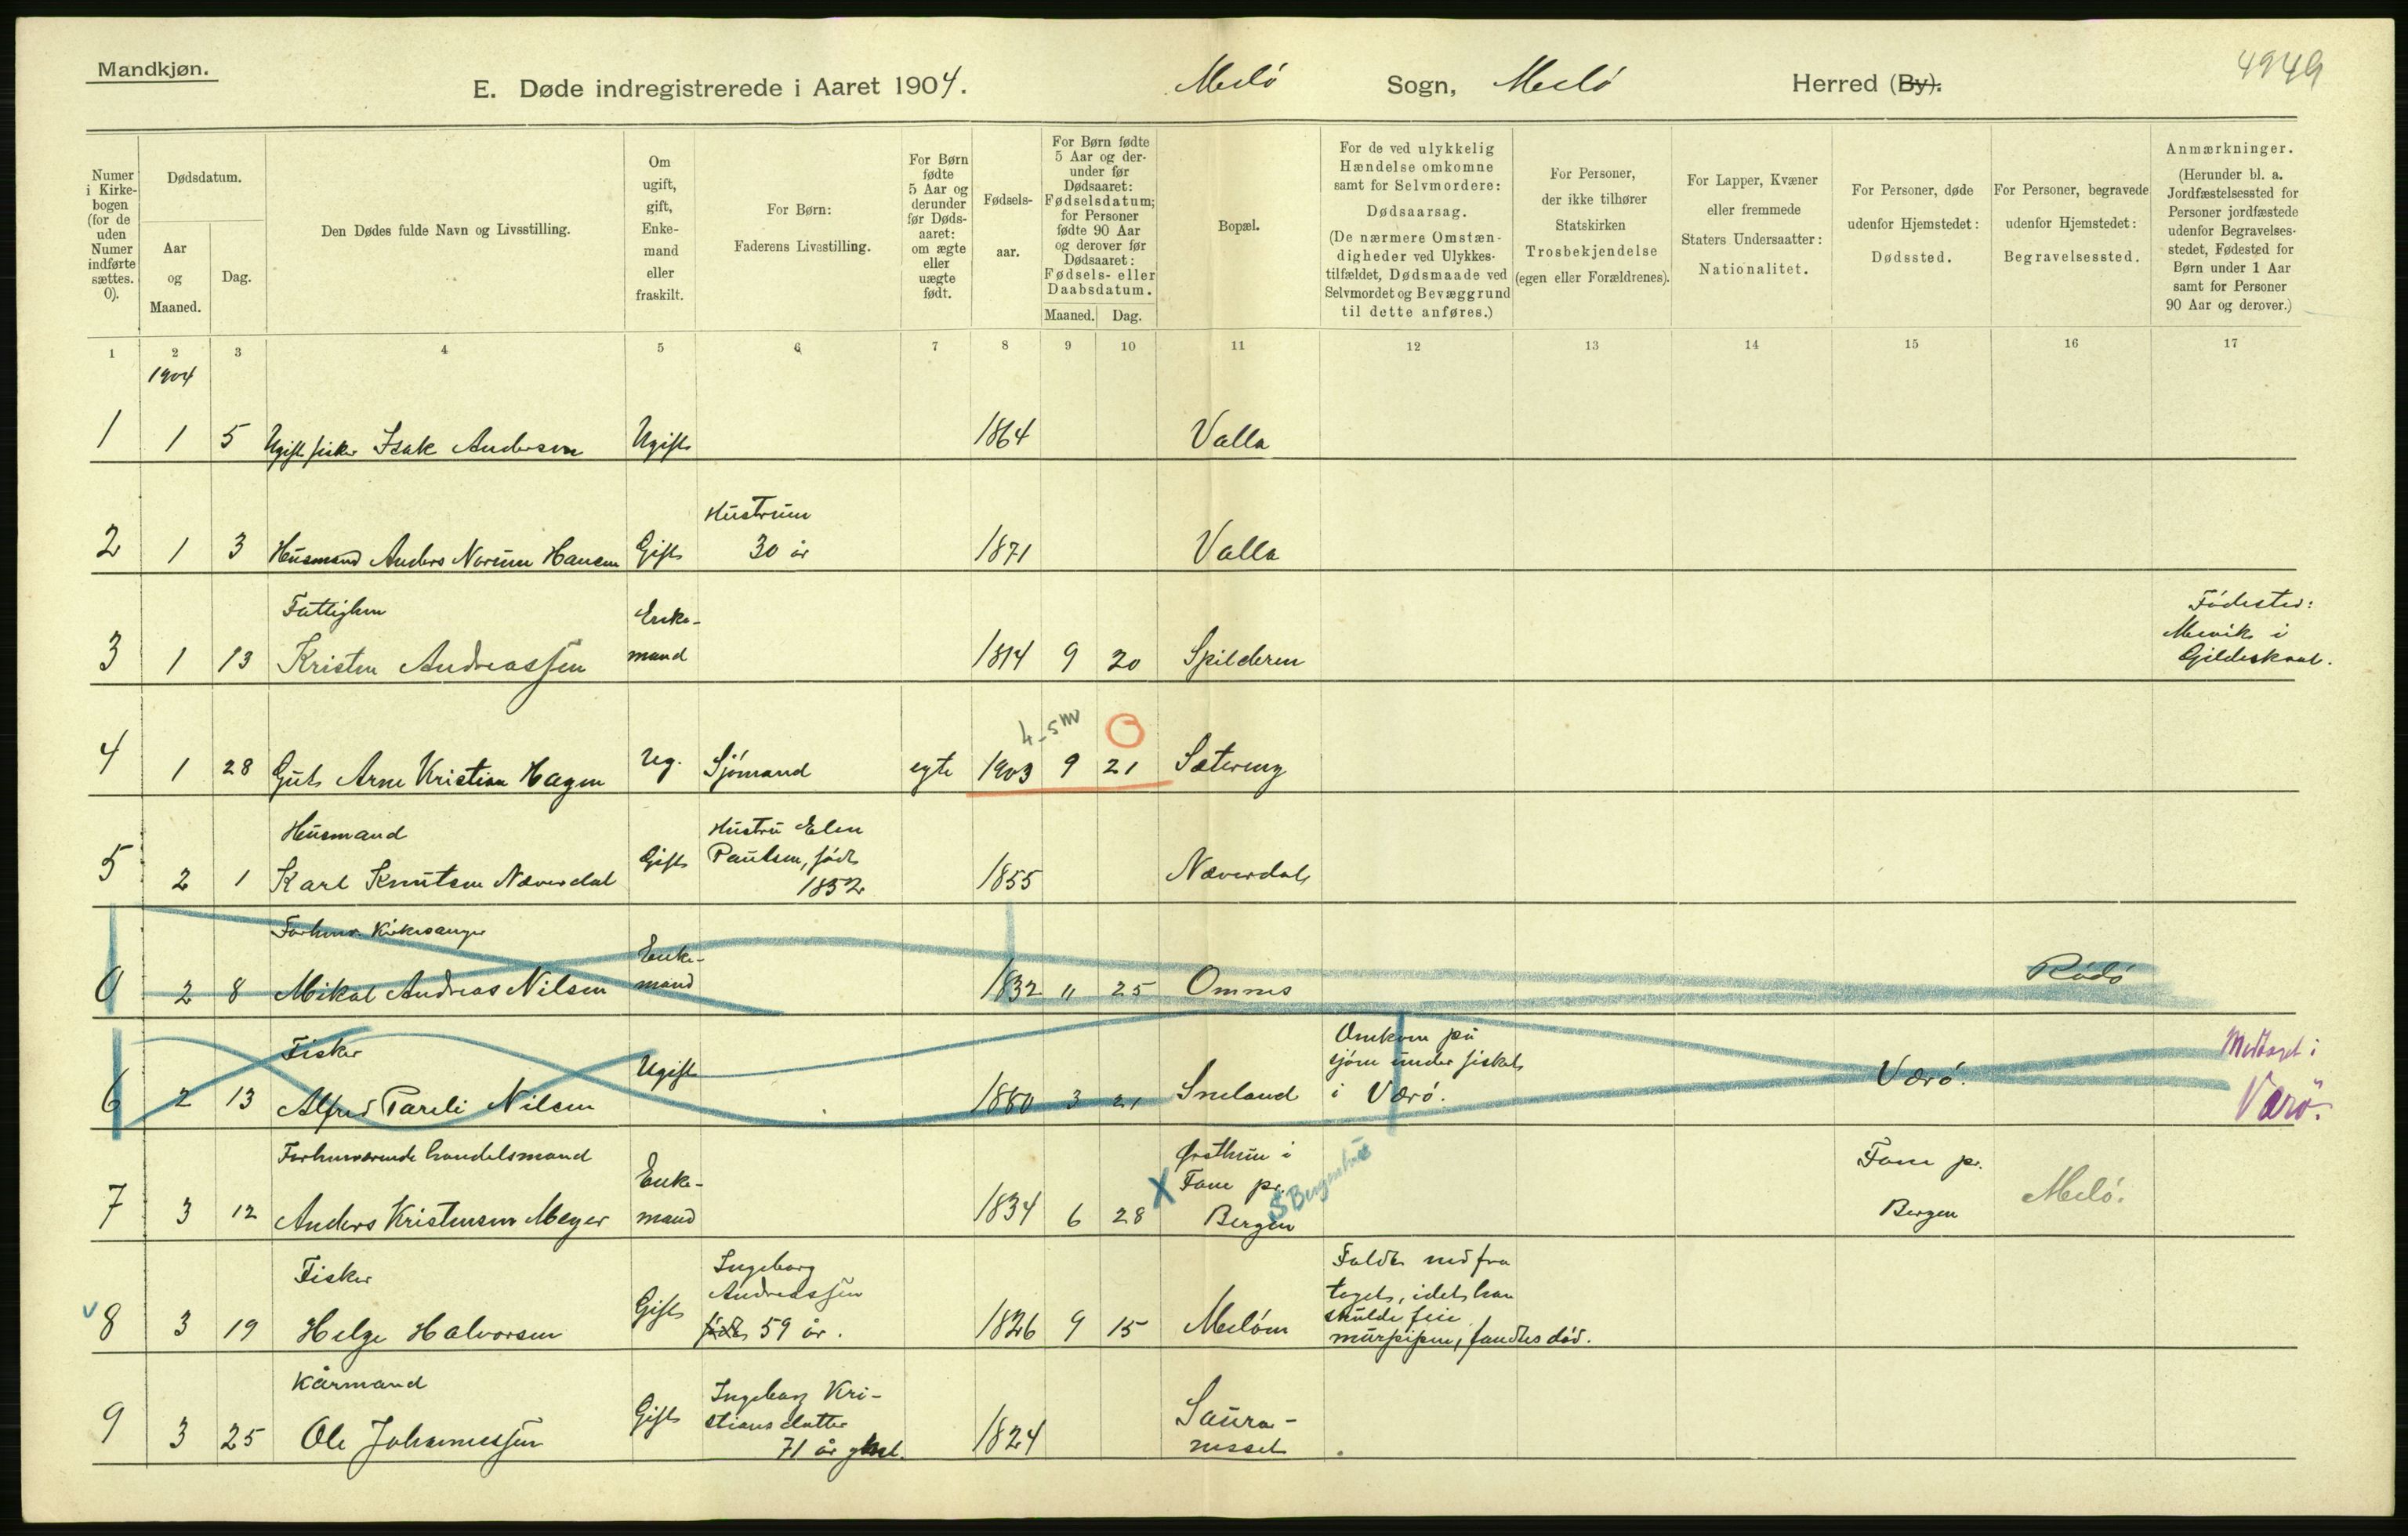 Mandkjøn.
E. Døde indregistrerede i Aaret 1904. Melö Sogn, Melö Herred (By).
4949
Numer i Kirkebogen (for de uden Numer indførte sættes. 0).
Dødsdatum.
Aar og Maaned.
Dag.
Den Dødes fulde Navn og Livsstilling.
Om ugift, gift, Enkemand eller fraskilt.
For Børn: Faderens Livsstilling.
For Børn fødte 5 Aar og derunder før Dødsaaret: om ægte eller uægte født.
Fødselsaar.
For Børn fødte 5 Aar og derunder før Dødsaaret: Fødselsdatum; for Personer fødte 90 Aar og derover før Dødsaaret: Fødsels- eller Daabsdatum.
Maaned. Dag.
Bopæl.
For de ved ulykkelig Hændelse omkomne samt for Selvmordere: Dødsaarsag. (De nærmere Omstændigheder ved Ulykkestilfældet, Dødsmaade ved Selvmordet og Bevæggrund til dette anføres.)
For Personer, der ikke tilhører Statskirken Trosbekjendelse (egen eller Forældrenes).
For Lapper, Kvæner eller fremmede Staters Undersaatter: Nationalitet.
For Personer, døde udenfor Hjemstedet: Dødssted.
For Personer, begravede udenfor Hjemstedet: Begravelsessted.
Anmærkninger. (Herunder bl. a. Jordfæstelsessted for Personer jordfæstede udenfor Begravelsesstedet, Fødested for Børn under 1 Aar samt for Personer 90 Aar og derover.)
1 2 3 4 5 6 7 8 9 10 11 12 13 14 15 16 17
1904
1 1 5 Ugift fisker Isak Andersen Ugift 1864 Valla
Hustruen
2 1 3 Husmand Anders Norum Hansen Gift 30 år 1871 Valla
Fattiglem Enke- Födested:
Mevik i
3 1 13 Kristen Andreassen mand 1814 9 20 Spilderen Gildeskaal.
4-5 m
4 1 28 Gut Arne Kristian Hagen Ug. Sjömand egte 1903 9 21 Sætereng
Husmand Hustru Elen
Paulsen, födt
5 2 1 Karl Knutsen Næverdal Gift 1852 1855 Næverdal
Forhenv. Kirkesanger Enke-
0 2 8 Mikal Andreas Nilsen mand 1832 11 25 Omnes Rödö
Fisker Omkom på Medtaget i
sjöen under fisket
6 2 13 Alfred Pareli Nilsen Ugift 1880 3 21 Sneland i Værö. Værö. Værö.
Forhenværende handelsmand Enke- Fane pr.
X Fane pr. S Bergenhus
7 3 12 Anders Kristensen Meyer mand 1834 6 28 Bergen Bergen Melö.
Fisker Ingeborg Faldt ned fra
Andreassen taget, idet han
skulde feie
v 8 3 19 Helge Halvorsen Gift födt 59 år. 1826 9 15 Melöen murpipen, fandtes död.
Kårmand Ingeborg Kri- Saura-
stiansdatter
9 3 25 Ole Johannessen Gift 71 år gml. 1824 nesset